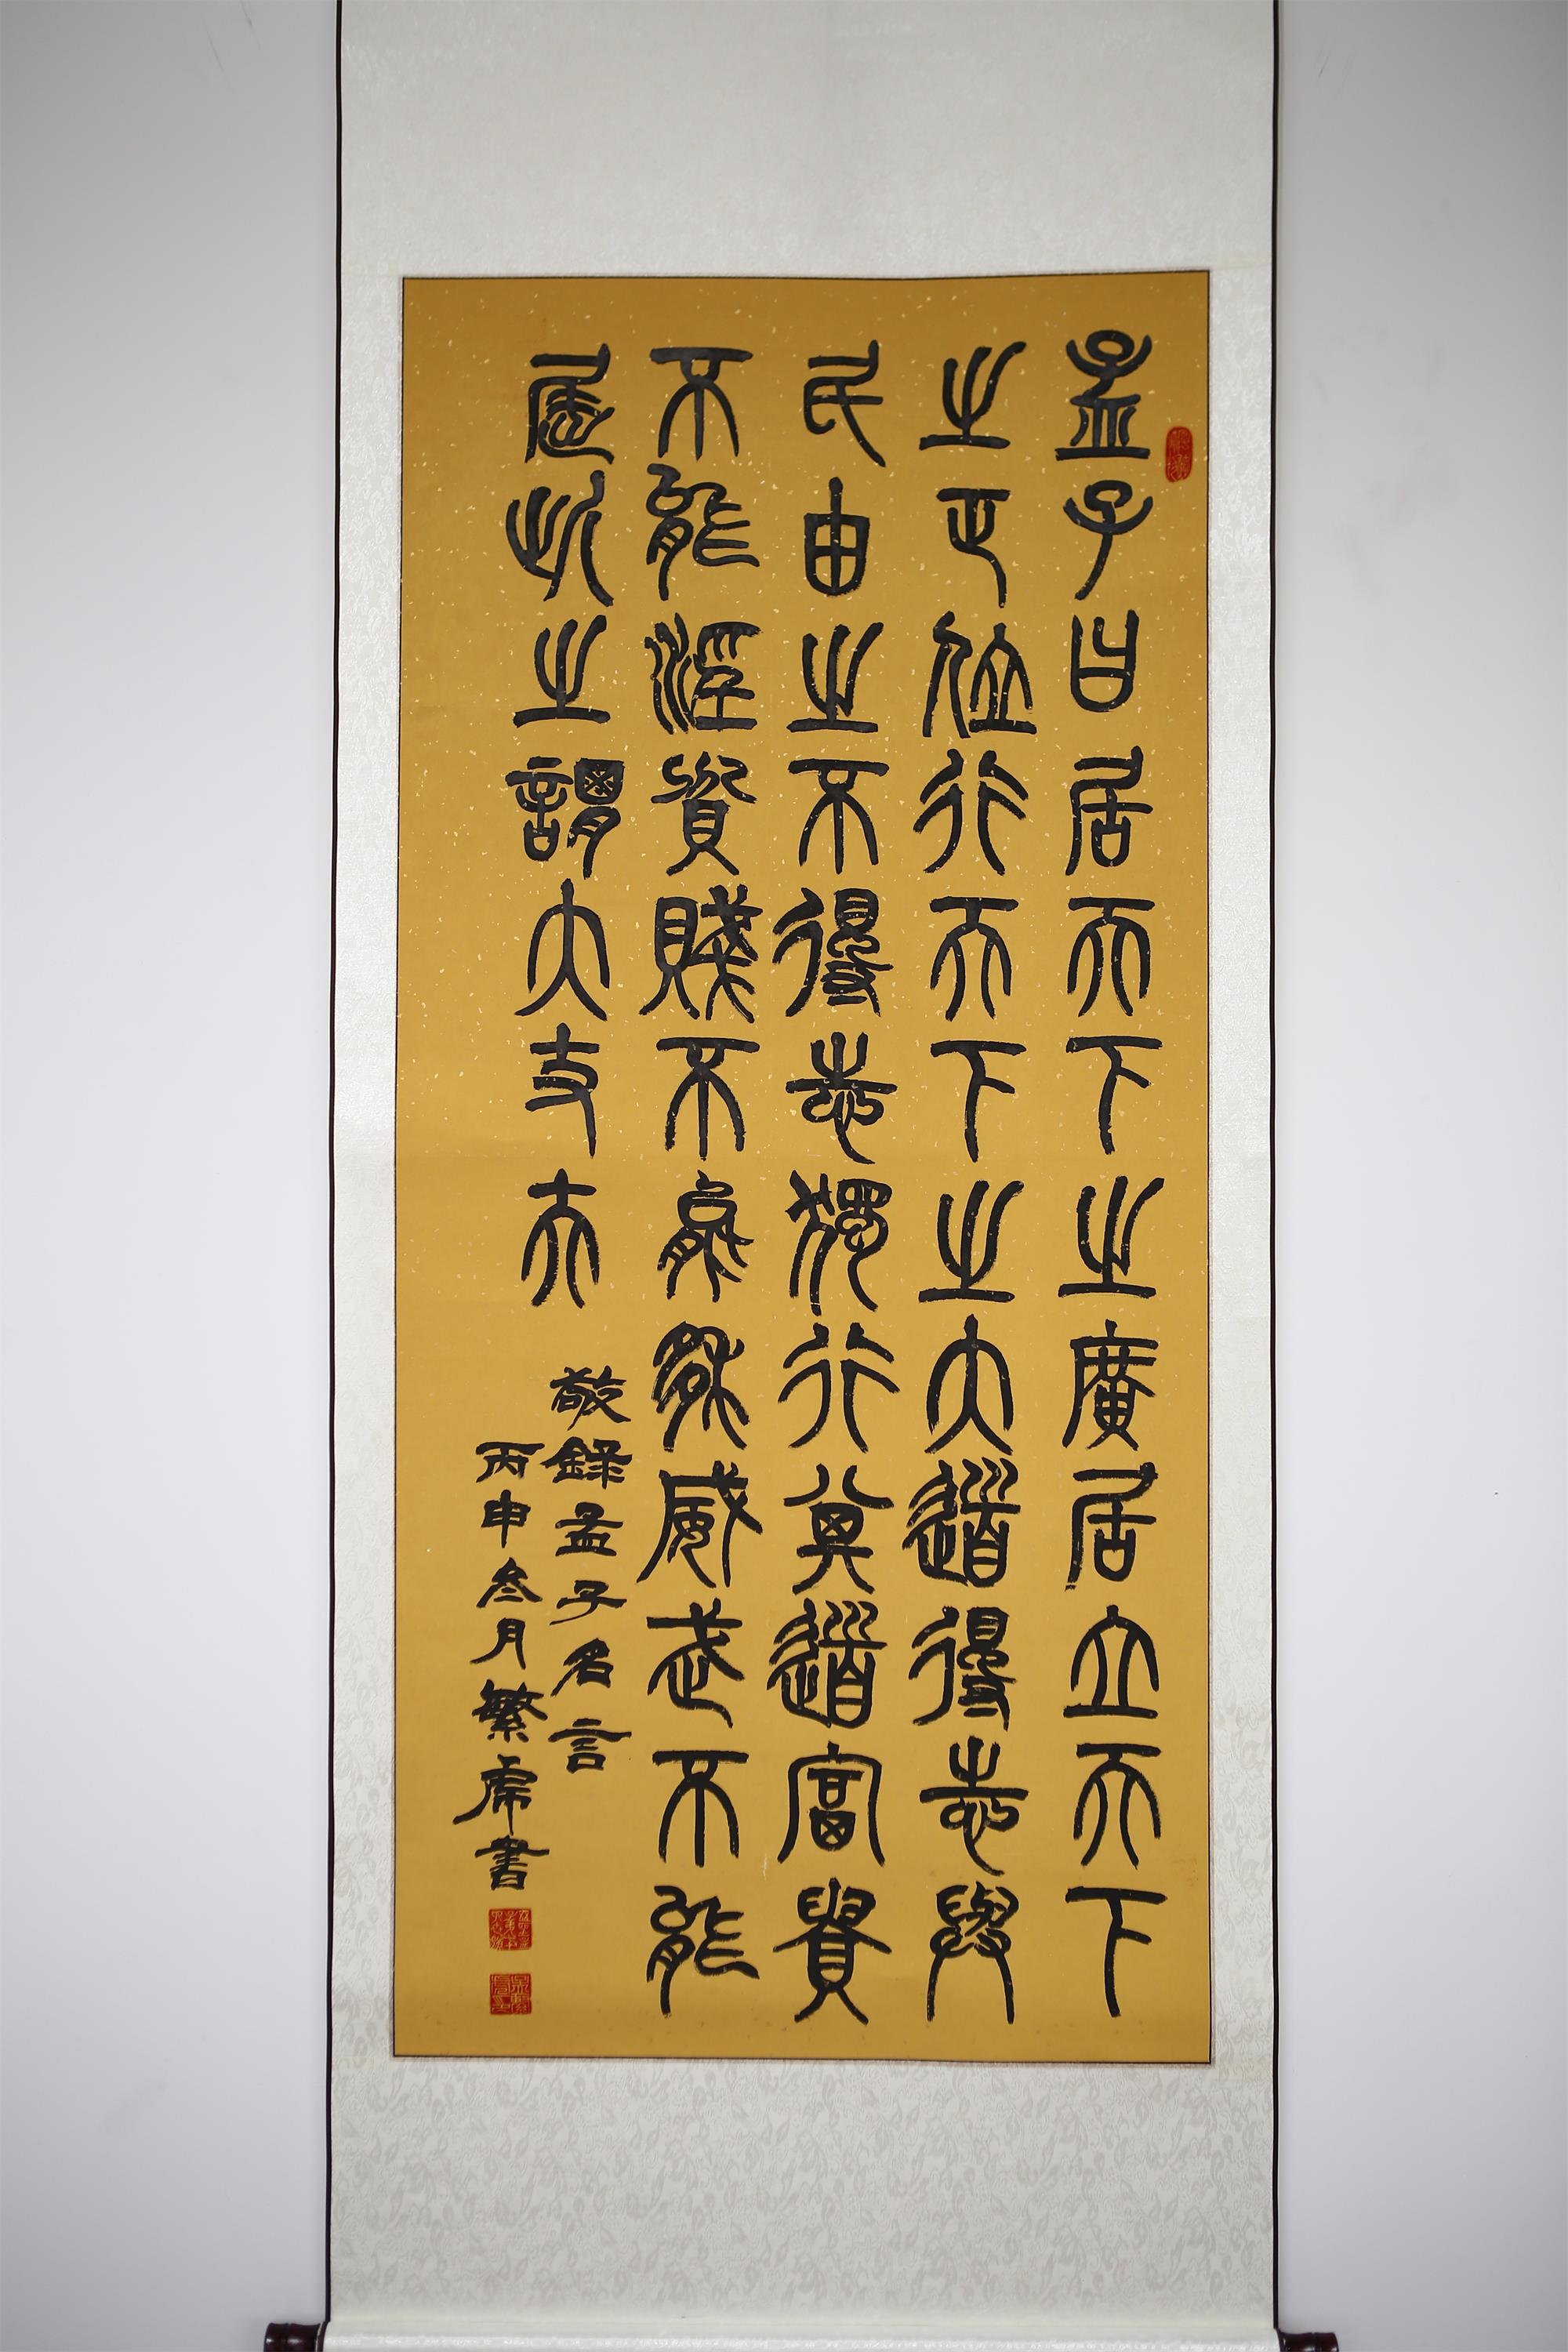 孟子曰居天下之廣居立天下
之正位行天下之大道得志與
民由之不得志獨行其道富貴
不能淫貧賤不能移威武不能
屈此之謂大丈夫
敬錄孟子名言
丙申叁月繁虎書